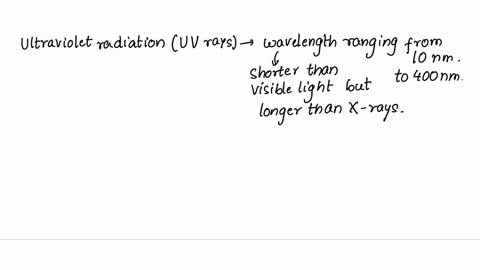 Ultraviolet radiation (UV rays) → wavelength ranging from 10 nm. to 400 nm.
↓
shorter than
visible light but
longer than X-rays.